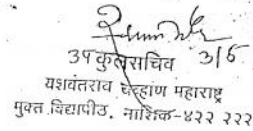 उपकुलसचिव 3/5
यशवंतराव चव्हाण महाराष्ट्र
मुक्त विद्यापीठ, नाशिक-४२२ २२२